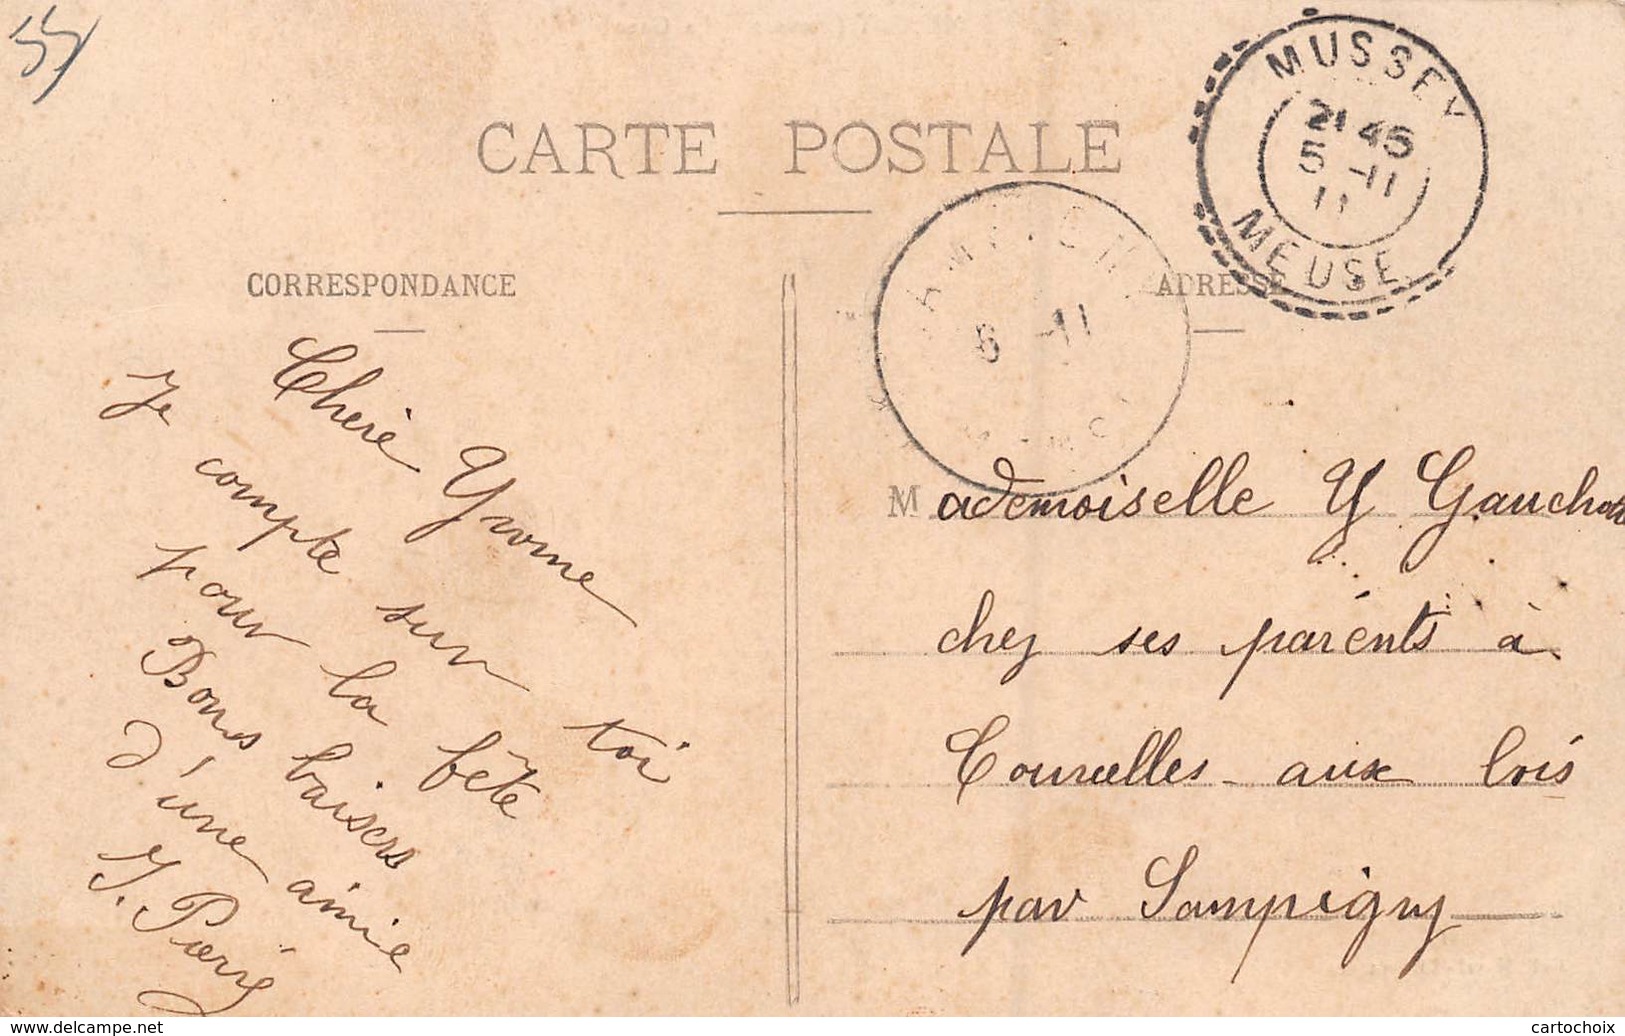 55
CARTE POSTALE
MUSSEY
21 45
5 -11
11
MEUSE
6 -11
CORRESPONDANCE
ADRESSE
Chère Yvonne
Je compte sur toi
pour la fête
Bons baisers
d'une amie
Y. Pierre
Mademoiselle Y
chez ses parents à
Courcelles-aux bois
par Sampigny
www.delcampe.net
cartochoix